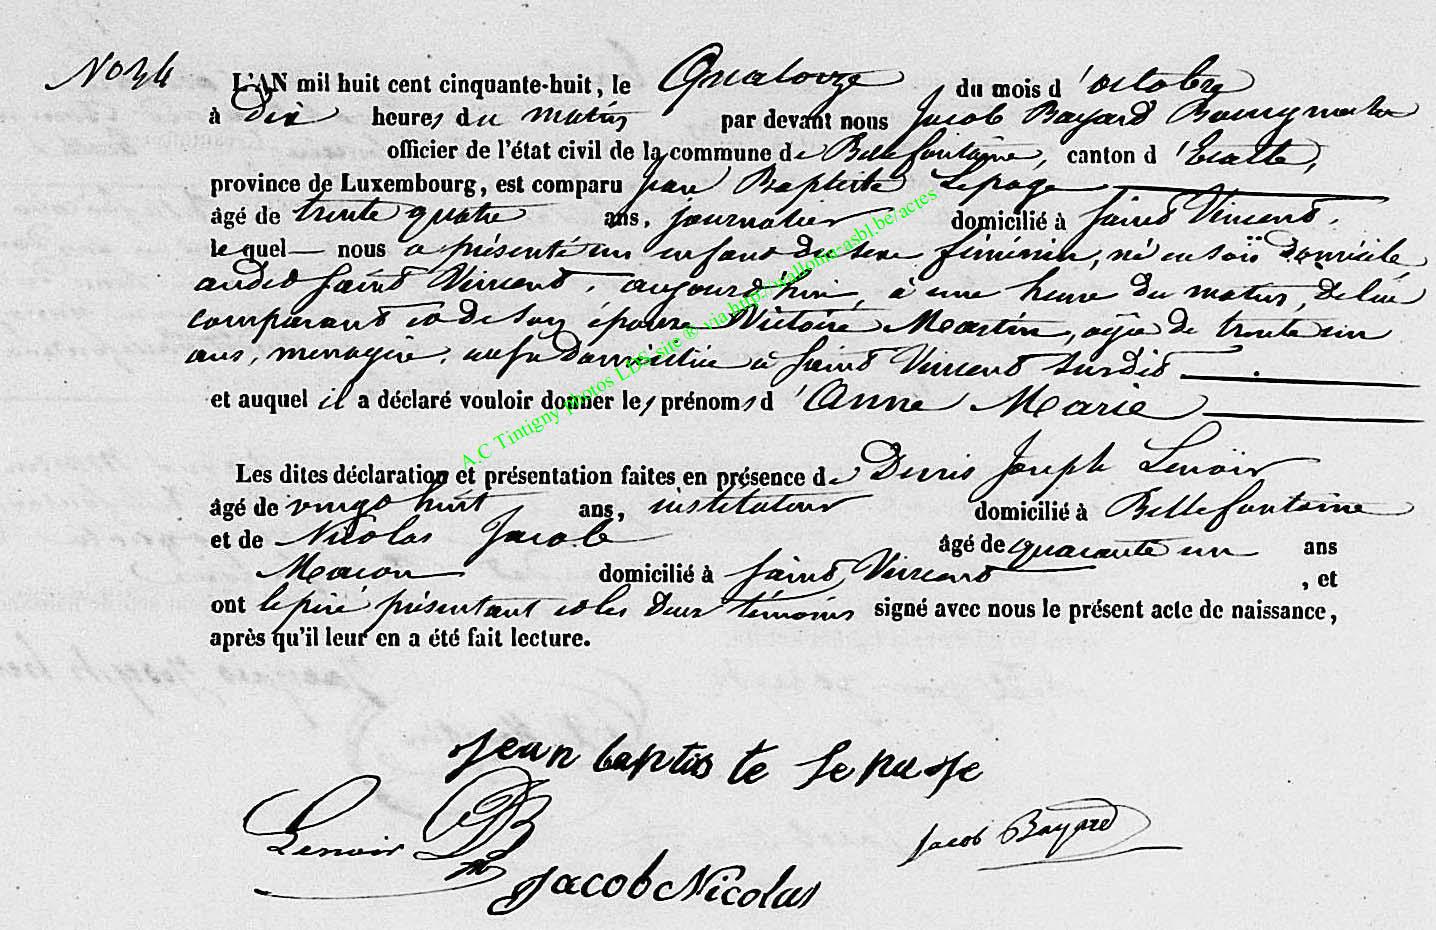 No 34
L'AN mil huit cent cinquante-huit, le Quatorze du mois d'octobre
à Dix heures du matin par devant nous Jacob Bayard Bourgmestre
officier de l'état civil de la commune de Bellefontaine, canton d'Etalle,
province de Luxembourg, est comparu Jean Baptiste Lepage
âgé de trente quatre ans, journalier domicilié à Saint Vincent,
lequel nous a présenté un enfant du sexe féminin, né en son domicile
audit Saint Vincent, aujourd'hui, à une heure du matin, de lui
comparant et de son épouse Victoire Martin, agée de trente un
ans, menagère, aussi domiciliée à Saint Vincent susdit
et auquel il a déclaré vouloir donner les prénoms d'Anne Marie
Les dites déclaration et présentation faites en présence de Denis Joseph Lenoir
âgé de vingt huit ans, instituteur domicilié à Bellefontaine
et de Nicolas Jacob âgé de quarante un ans
Macon domicilié à Saint Vincent, et
ont le père présentant et les deux témoins signé avec nous le présent acte de naissance,
après qu'il leur en a été fait lecture.
A.C Tintigny photos LDS site ® via http://wallonia-asbl.be/actes
Jean baptis te le pa ge
Lenoir
Jacob Bayard
Jacob Nicolas